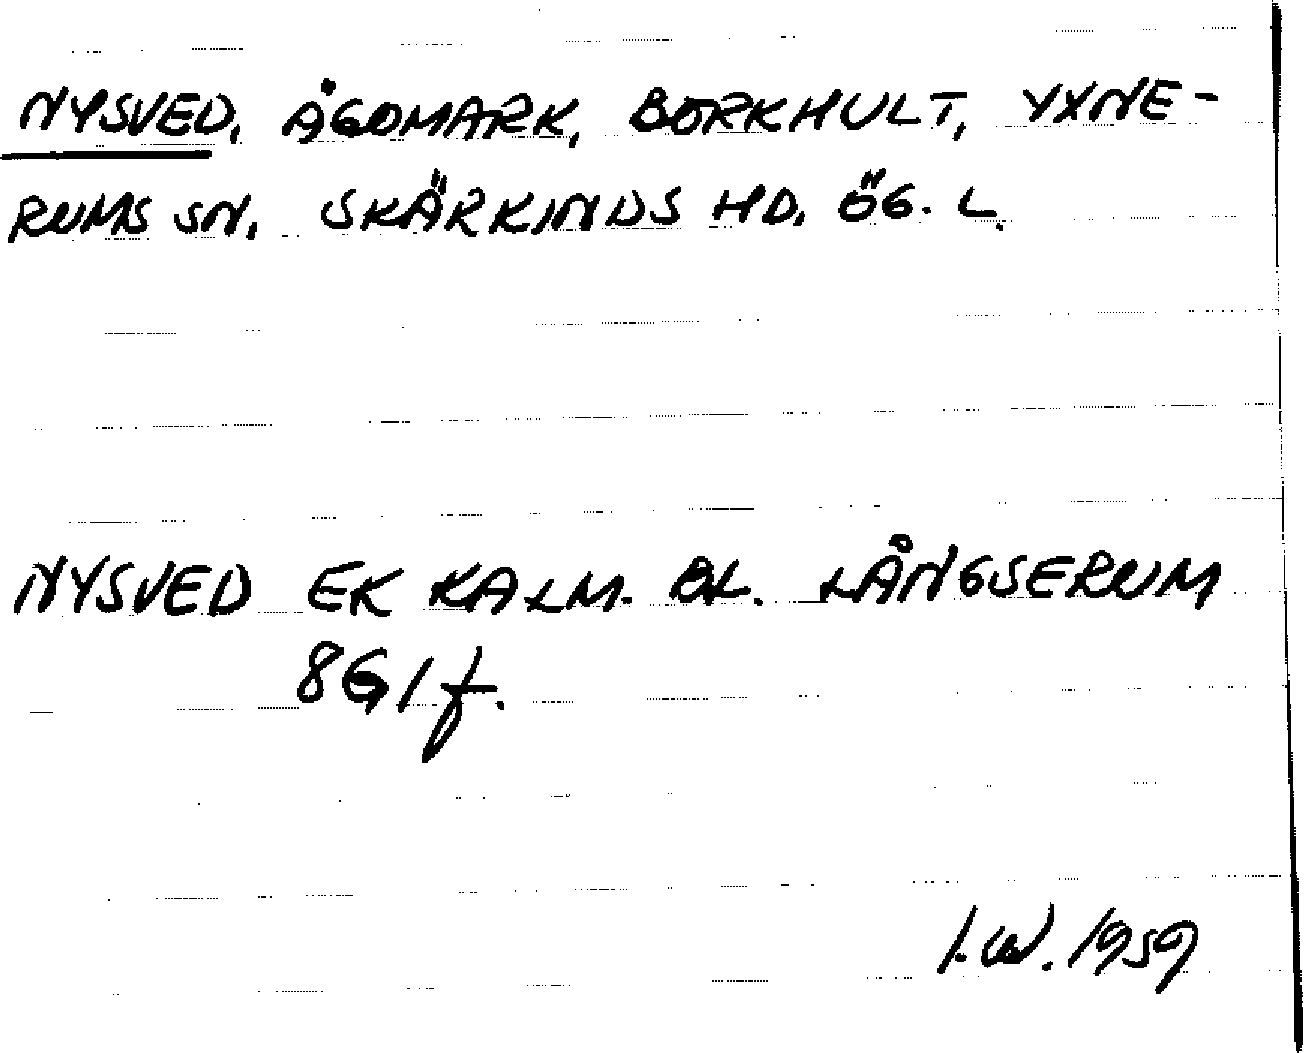 NYSVED, ÄGOMARK, BORKHULT, YXNE-
RUMS SN, SKÄRKINDS HD, ÖG. L.
NYSVED EK KALM. BL. LÅNGSERUM
8G1f.
I.W. 1959